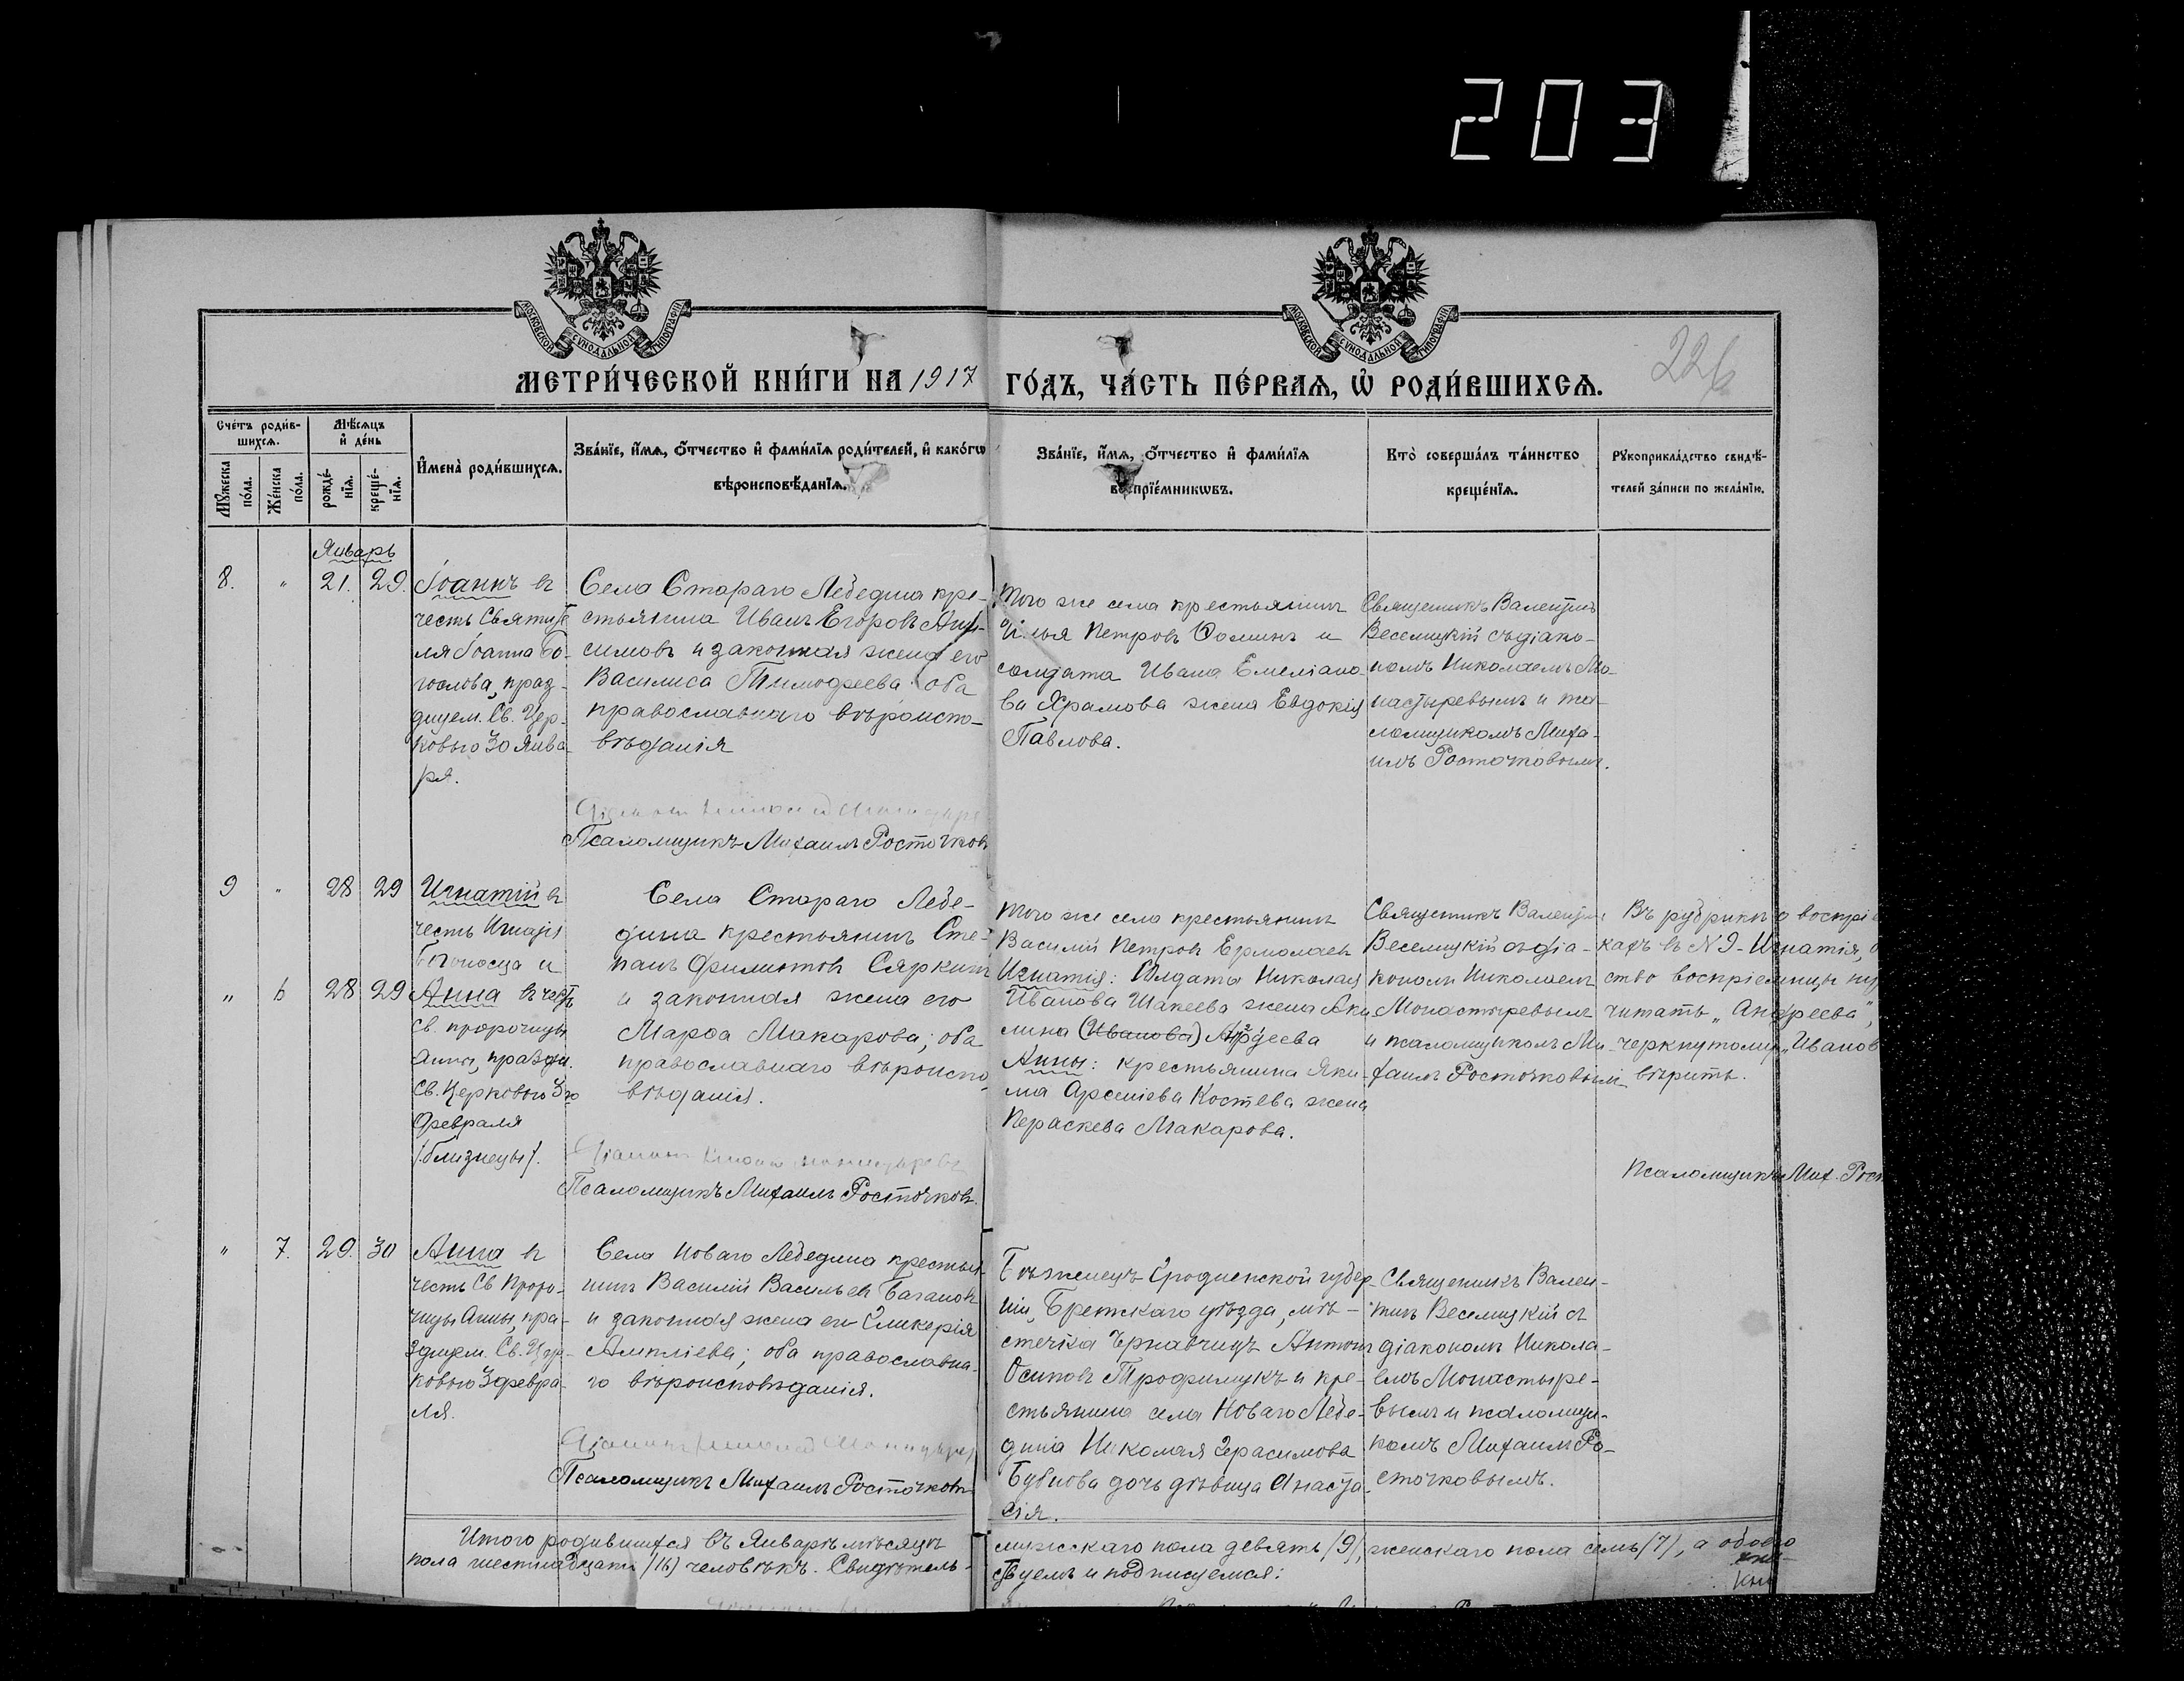 203
МОСКОВСКОЙ СѴНОДАЛЬНОЙ ТИПОГРАФІИ
МОСКОВСКОЙ СѴНОДАЛЬНОЙ ТИПОГРАФІИ
226
МЕТРИ́ЧЕСКОЙ КНИ́ГИ НА 1917 ГО́ДЪ, ЧА́СТЬ ПЕ́РВАѦ, Ѡ҆ РОДИ́ВШИХСѦ.
Сче́тъ роди́в-
шихсѧ.
Мꙋ́жеска
по́ла.
Же́нска
по́ла.
Мѣ́сѧцъ
и҆ де́нь
рожде́-
нїѧ.
креще́-
нїѧ.
И҆мена̀ роди́вшихсѧ.
Зва́нїе, и҆́мѧ, ѻ҆́тчество и҆ фами́лїѧ роди́телей, и҆ како́гѡ
вѣроисповѣ́данїѧ.
Зва́нїе, и҆́мѧ, ѻ҆́тчество и҆ фами́лїѧ
воспрїе́мникѡвъ.
Кто̀ соверша́лъ та́инство
креще́нїѧ.
Рꙋкоприкла́дство свидѣ́-
телей за́писи по жела́нїю.
Январь
8. " 21. 29.
Іоаннъ въ
честь Святите
ля Іоанна Бо-
гослова, праз-
дуем. Св. Цер-
ковью 30 Янва-
ря.
Села Стараго Лебедина кре-
стьянина Иванъ Егоровъ
симовъ и законная жена его
Василиса Тимофеева оба
православнаго вѣроиспо-
вѣданія
Псаломщикъ Михаилъ Росточковъ
Того же села крестьянинъ
Илья Петровъ Фоминъ и
солдата Ивана Емеліано-
ва Храмова жена Евдокія
Павлова.
Священникъ Валентинъ
Веселицкій съ діако-
номъ Николаемъ Мо-
настыревымъ и пса-
ломщикомъ Миха-
иломъ Росточковымъ.
9 " 28 29
Игнатій въ
честь Игнатія
Богоносца и
" 6 28 29
Анна въ честь
Св. пророчицы
Анны, праздн.
Св. Церковью 3го
Февраля
/близнецы/.
Села Стараго Лебе-
дина крестьянинъ Сте-
панъ Филиповъ Сяркинъ
и законная жена его
Марфа Макарова; оба
православнаго вѣроиспо-
вѣданія.
Псаломщикъ Михаилъ Росточковъ.
Того же села крестьянинъ
Василій Петровъ Ермолаевъ
Игнатія: Солдата Николая
Иванова Шакеева жена Аку
лина (Иванова) Андреева
Анны: крестьянина Яки-
ма Арсеніева Костева жена
Параскева Макарова.
Священникъ Валентинъ
Веселицкій съ діа-
кономъ Николаемъ
Монастыревымъ
и псаломщикомъ Ми-
хаиломъ Росточковымъ
Въ рубрикѣ о воспріе
кахъ въ № 9 - Игнатія, о
ство воспріемницы ну
читать „Андреева",
черкнутому „Иванов
вѣрить.
Псаломщикъ Мих. Рост
" 7. 29. 30
Анна въ
честь Св Проро-
чицы Анны, пра-
здуем. Св. Цер-
ковью 3 февра-
ля.
Села Новаго Лебедина крестья-
нинъ Василій Васильевъ Багановъ
и законная жена его Гликерія
Алипіева; оба православна-
го вѣроисповѣданія.
Псаломщикъ Михаилъ Росточковъ
Бѣженецъ Гродненской губер-
ніи, Брестскаго уѣзда, мѣ-
стечка Чернавчицъ Антонъ
Осиповъ Трофимукъ и кре-
стьянина села Новаго Лебе-
дина Николая Герасимова
Бубнова дочь дѣвица Анаста-
сія.
Священникъ Вален-
тинъ Веселицкій съ
діакономъ Никола-
емъ Монастыре-
вымъ и псаломщи-
комъ Михаиломъ Ро-
сточковымъ.
Итого родившихся въ Январѣ мѣсяцѣ мужскаго пола девять /9/, женскаго пола семь /7/, а обоего
пола шестнадцать /16/ человѣкъ. Свидѣтель- ствуемъ и подписуемся: